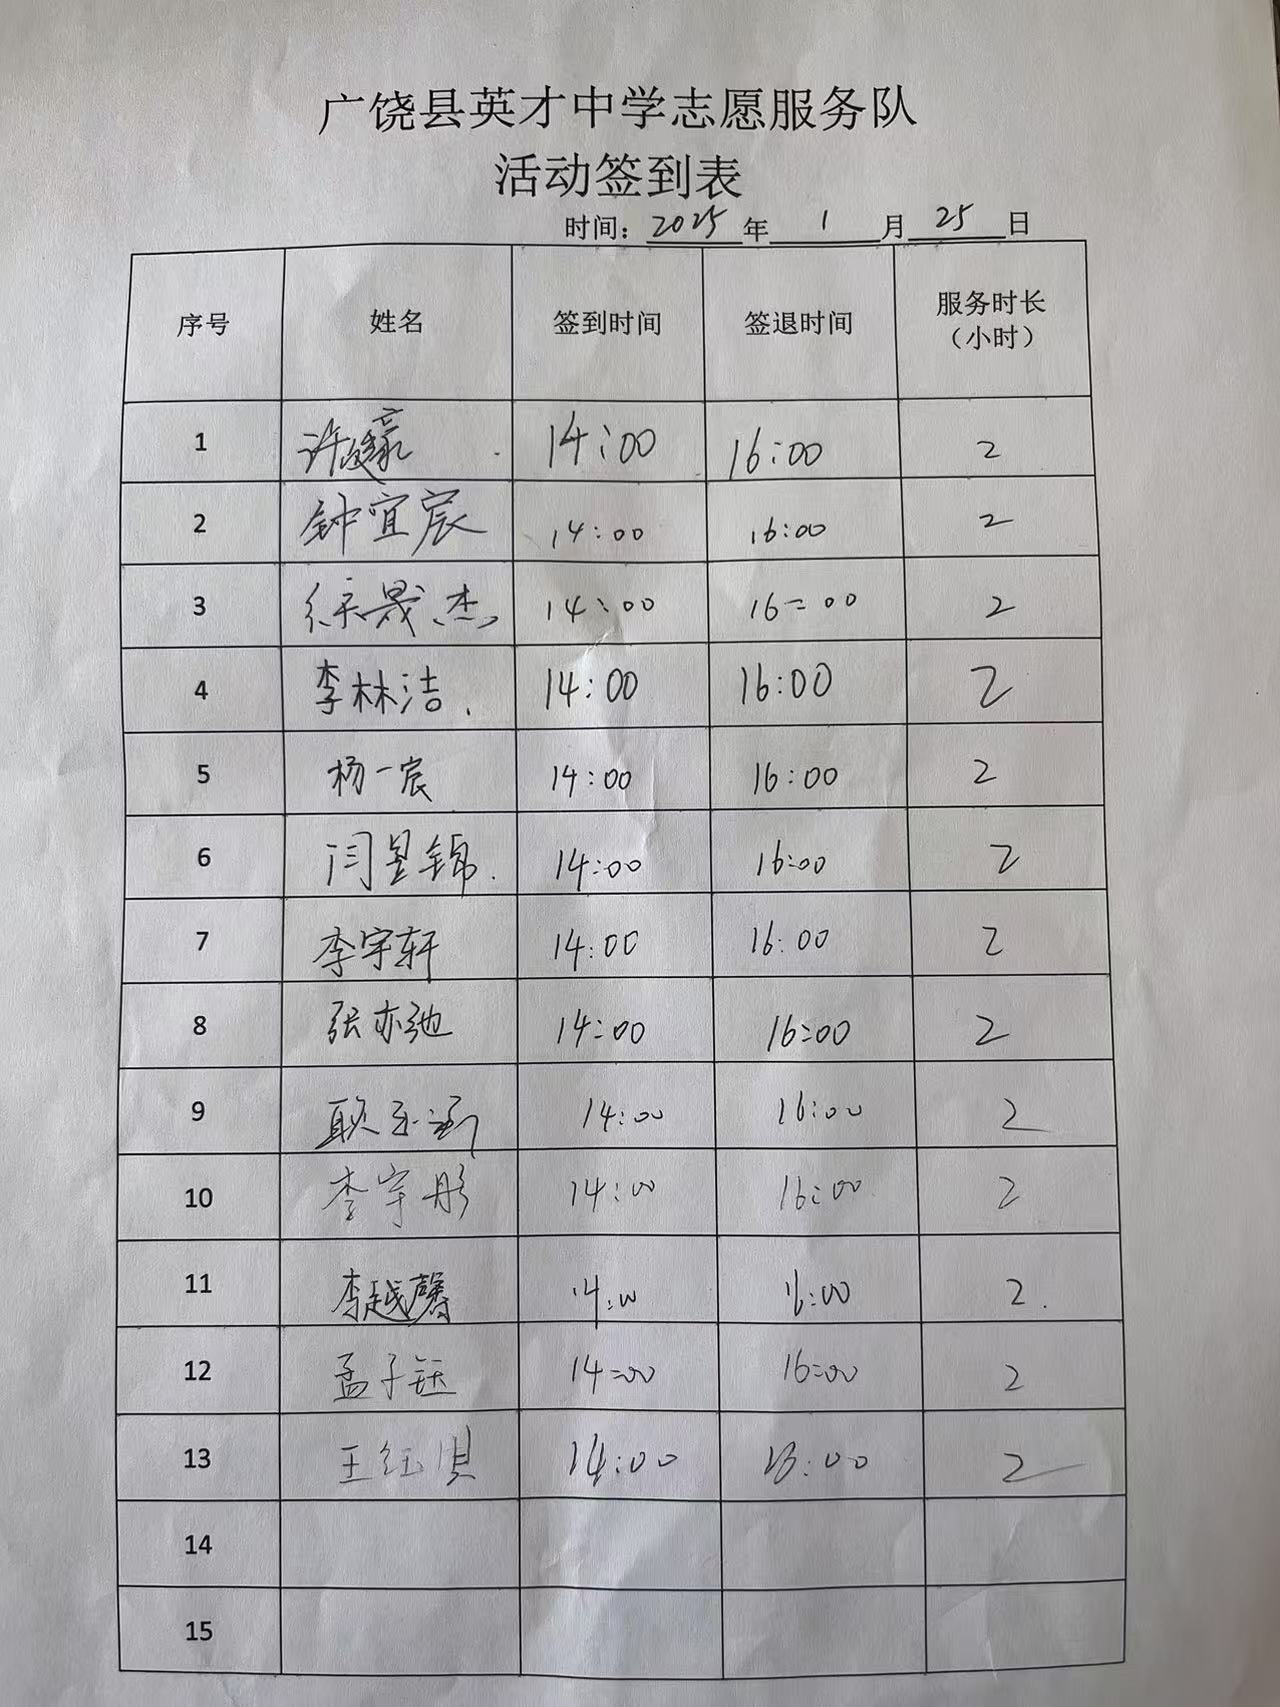 广饶县英才中学志愿服务队
活动签到表
时间：2025年 1 月 25 日
序号 姓名 签到时间 签退时间 服务时长（小时）
1 许建豪 14:00 16:00 2
2 钟宜宸 14:00 16:00 2
3 徐晟杰 14:00 16:00 2
4 李林洁 14:00 16:00 2
5 杨一宸 14:00 16:00 2
6 闫昱锦 14:00 16:00 2
7 李宇轩 14:00 16:00 2
8 张亦弛 14:00 16:00 2
9 耿玉涵 14:00 16:00 2
10 李宇彤 14:00 16:00 2
11 李越馨 14:00 16:00 2
12 孟子钰 14:00 16:00 2
13 王钰 14:00 :00 2
14
15